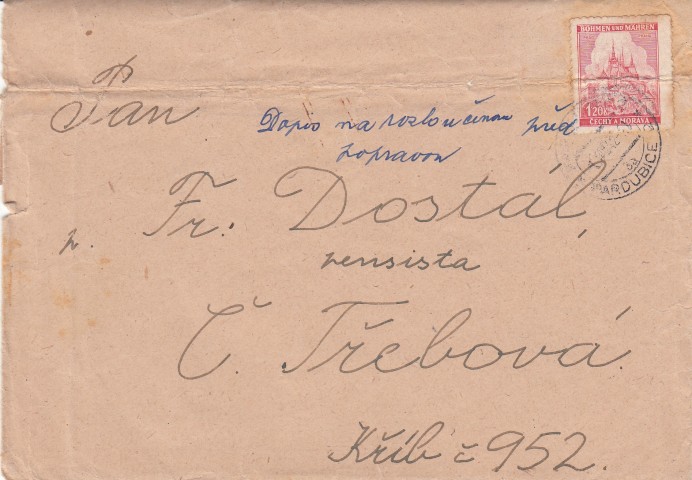 BÖHMEN UND MÄHREN
1.20K
ČECHY A MORAVA
PARDUBICE
3a
Pan
Dopis na rozloučenou před
popravou
p. Fr. Dostál,
pensista
Č. Třebová.
Křib č 952.